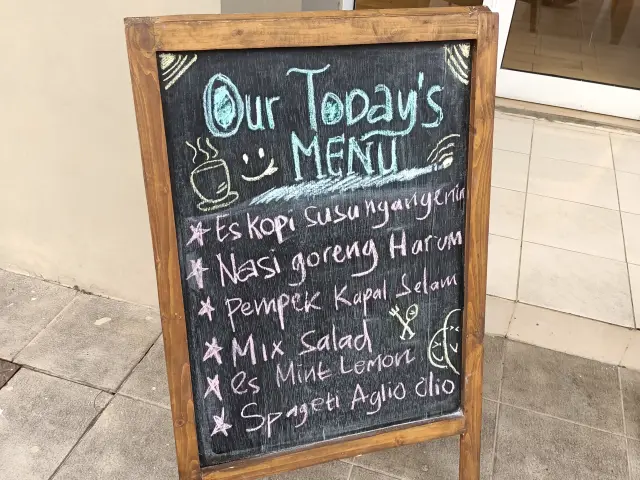 Our Today's
MENU
Es kopi susu ngangenin
Nasi goreng Harum
Pempek Kapal Selam
Mix Salad
es Mint Lemon
Spageti Aglio olio